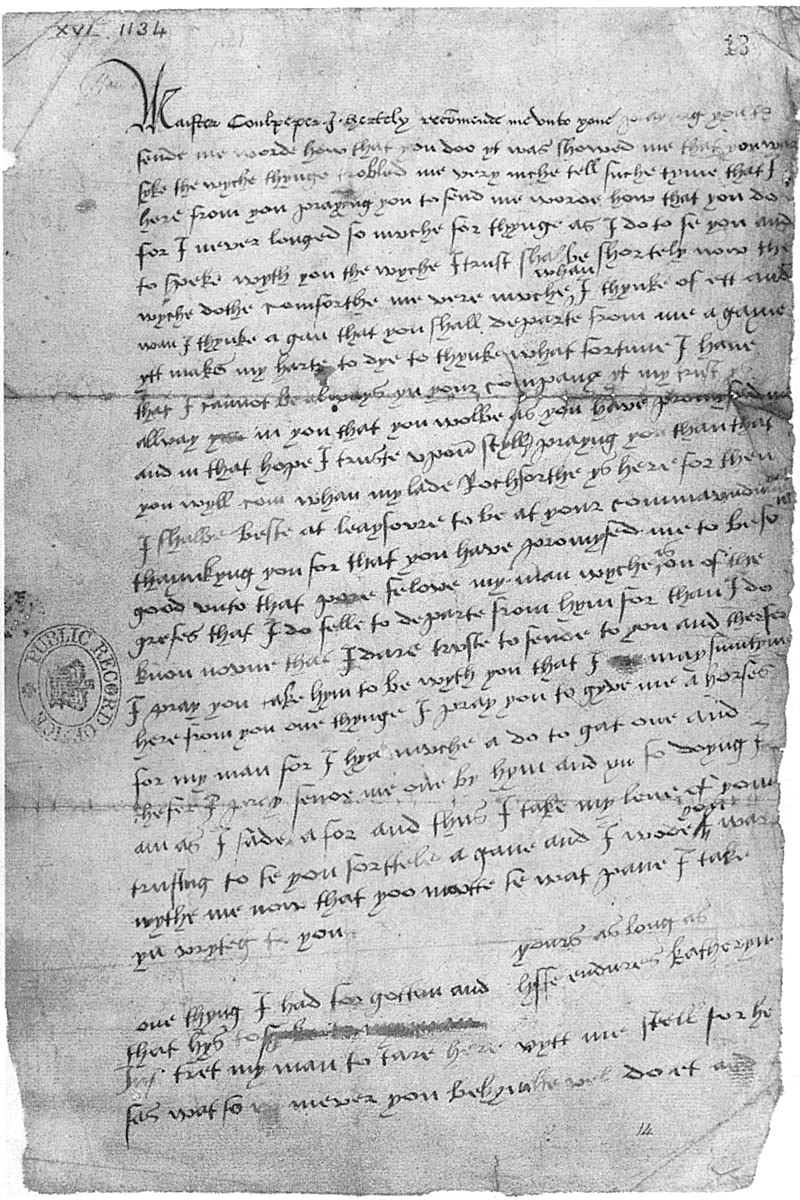 XVI. 1134
13
Maister Coulpeper I hertely recomende me unto youe praying you to
sende me worde how that you doo yt was showed me that you was
syke the wyche thynge trobled me very muche tell suche tyme that I
here from you praying you to send me worde how that you do
for I never longed so muche for thynge as I do to se you and
to speke wyth you the wyche I trust shal be shortely now the
wyche dothe comforthe me verie muche whan I thynke of ett and
wan I thynke a gan that you shall departe from me a gaine
ytt makes my harte to dye to thynke what fortune I have
that I cannot be always yn your company yt my trust ys
allway in you that you wolbe as you have promysed me
and in that hope I truste upon styll prayng you than that
you wyll com whan my lade Rochforthe ys here for then
I shalbe beste at leaysoure to be at your commaundment
thaynkyng you for that you have promysed me to be so
good unto that pore felowe my man wyche is on of the
grefes that I do felle to departe from hym for than I do
know noone that I dare truste to sende to you and therfor
I pray you take hym to be wyth you that I may sumtym
here from you one thynge I pray you to gyve me a horses
for my man for I hyd muche a do to gat one and
therfer I pray sende me one by hym and yn so doyng I
am as I sade afor and thus I take my leve of you
trusting to se you sorttele a gane and I wode you war
wythe me now that yoo maitte se wat pane I take
yn wryteg to you
yours as long as
lyffe endures
Katheryn
one thyng I had forgotten and
that hys to
Inj tret my man to tare here wytt me still for he
sas wat so ever you bid hym he wel do et and
14
PUBLIC RECORD OFFICE